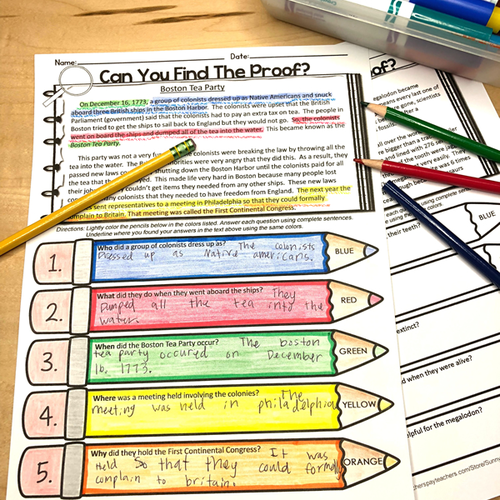 Name: Date:
Can You Find The Proof?
Boston Tea Party
On December 16, 1773, a group of colonists dressed up as Native Americans and snuck
aboard three British ships in the Boston Harbor. The colonists were upset that the British
Parliament (government) said that the colonists had to pay an extra tax on tea. The people in
Boston tried to get the ships to sail back to England but they would not go. So, the colonists
went on board the ships and dumped all of the tea into the water. This became known as the
Boston Tea Party.
This party was not a very fun colonists were breaking the law by throwing all the
tea into the water. The authorities were very angry that they did this. As a result, they
passed new laws shutting down the Boston Harbor until the colonists paid for all
the tea that they This made life very hard in Boston because many people lost
their jobs couldn't get items they needed from any other places. These new laws
many colonists that they needed to have freedom from England. The next year the
sent representatives to a meeting in Philadelphia so that they could formally
complain to Britain. That meeting was called the First Continental Congress.
Directions: Lightly color the pencils below in the colors listed. Answer each question using complete sentences.
Underline where you found your answers in the text above using the same colors.
1. Who did a group of colonists dress up as? The colonists
Dressed up as Native americans. BLUE
2. What did they do when they went aboard the ships? They
Dumped all the tea into the
water. RED
3. When did the Boston Tea Party occur? The boston
tea party occured on December
16, 1773. GREEN
4. Where was a meeting held involving the colonies? The
meeting was held in philadelphia YELLOW
5. Why did they hold the First Continental Congress? It was
Held So that they could formaly
complain to britain. ORANGE
of?
megalodon became
means every last one of
gone, scientists
fossils after a
all over the world
be bigger than a
and lined with 276
the tooth were
very easily. There
megalodon was 6 times
using complete sentences.
extinct?
d when they were alive?
helpful for the megalodon?
herspayteachers.com/Store/Sunny